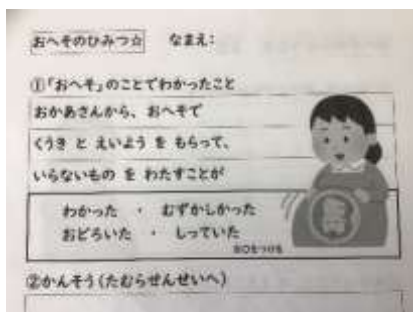 おへそのひみつ☆ なまえ：
①「おへそ」のことでわかったこと
おかあさんから、おへそで
くうき と えいよう を もらって、
いらないもの を わたすことが
わかった ・ むずかしかった
おどろいた ・ しっていた
②かんそう(たむらせんせいへ)